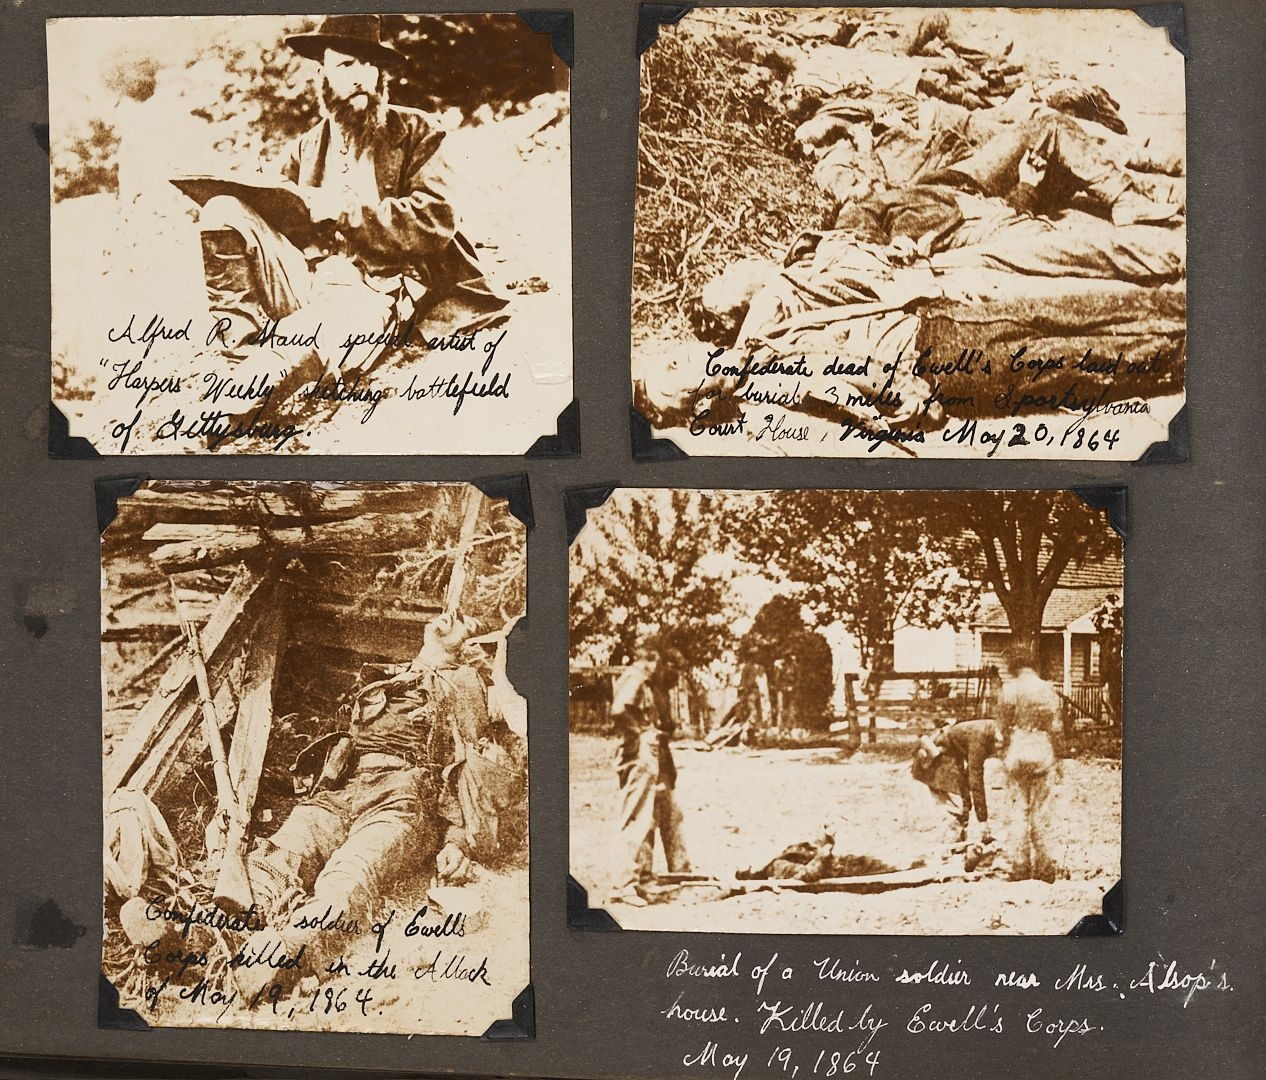 Alfred R. Maud special artist of
"Harpers Weekly" sketching battlefield
of Gettysburg.
Confederate dead of Ewell's Corps laid out
for burial 3 miles from Spartsylvania
Court House, Virginia May 20, 1864
Confederate soldier of Ewell's
Corps killed in the Attack
of May 19, 1864.
Burial of a Union soldier near Mrs. Alsop's.
house. Killed by Ewell's Corps.
May 19, 1864